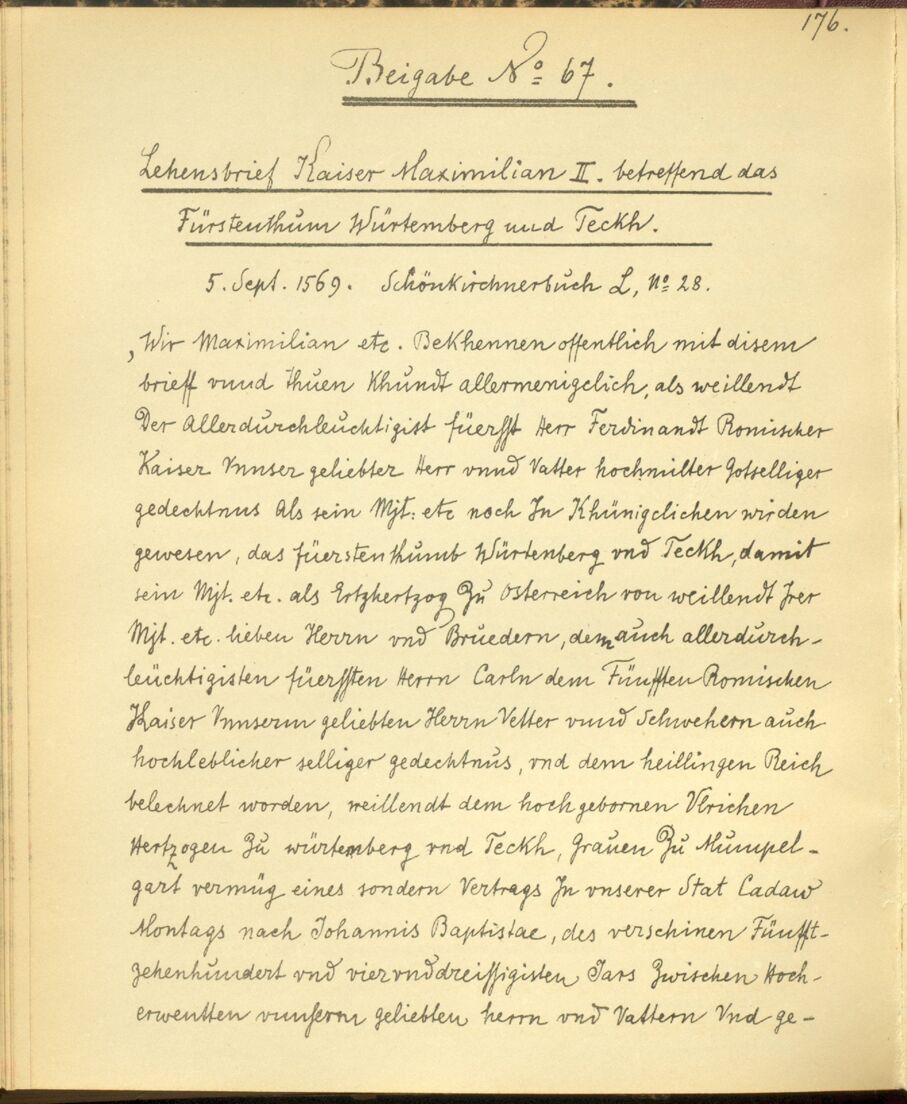 176.
Beigabe No 67.
Lehensbrief Kaiser Maximilian II. betreffend das
Fürstenthum Würtemberg und Teckh.
5. Sept. 1569. Schönkirchnerbuch L, No 28.
„Wir Maximilian etc. Bekhennen offentlich mit disem
brieff vnnd thuen Khundt allermenigclich, als weillendt
Der Allerdurchleuchtigist füersst Herr Ferdinandt Romischer
Kaiser Vnnser geliebter Herr vnnd Vatter hochmilter Gotselliger
gedechtnus Als sein Mjt: etc noch In Khünigclichen wirden
gewesen, das füerstenthumb Würtenberg vnd Teckh, damit
sein Mjt. etc. als Ertzhertzog Zu Osterreich von weillendt Irer
Mjt. etc. lieben Herrn vnd Bruedern, dem auch allerdurch-
leüchtigisten füerssten Herrn Carln dem Fünfften Romischen
Kaiser Vnnserm geliebten Herrn Vetter vnnd Schwehern auch
hochleblicher selliger gedechtnus, vnd dem heilligen Reich
belechnet worden, weillendt dem hochgebornen Vlrichen
Hertzogen Zu würtemberg vnd Teckh, Grauen Zu Mumpel-
gart vermüg eines sondern Vertrags In vnserer Stat Cadaw
Montags nach Johannis Baptistae, des verschinen Fünfft-
zehenhundert vnd viervnddreissigisten Jars Zwischen Hoch-
erwentten vnnserm geliebten herrn vnd Vattern Vnd ge-